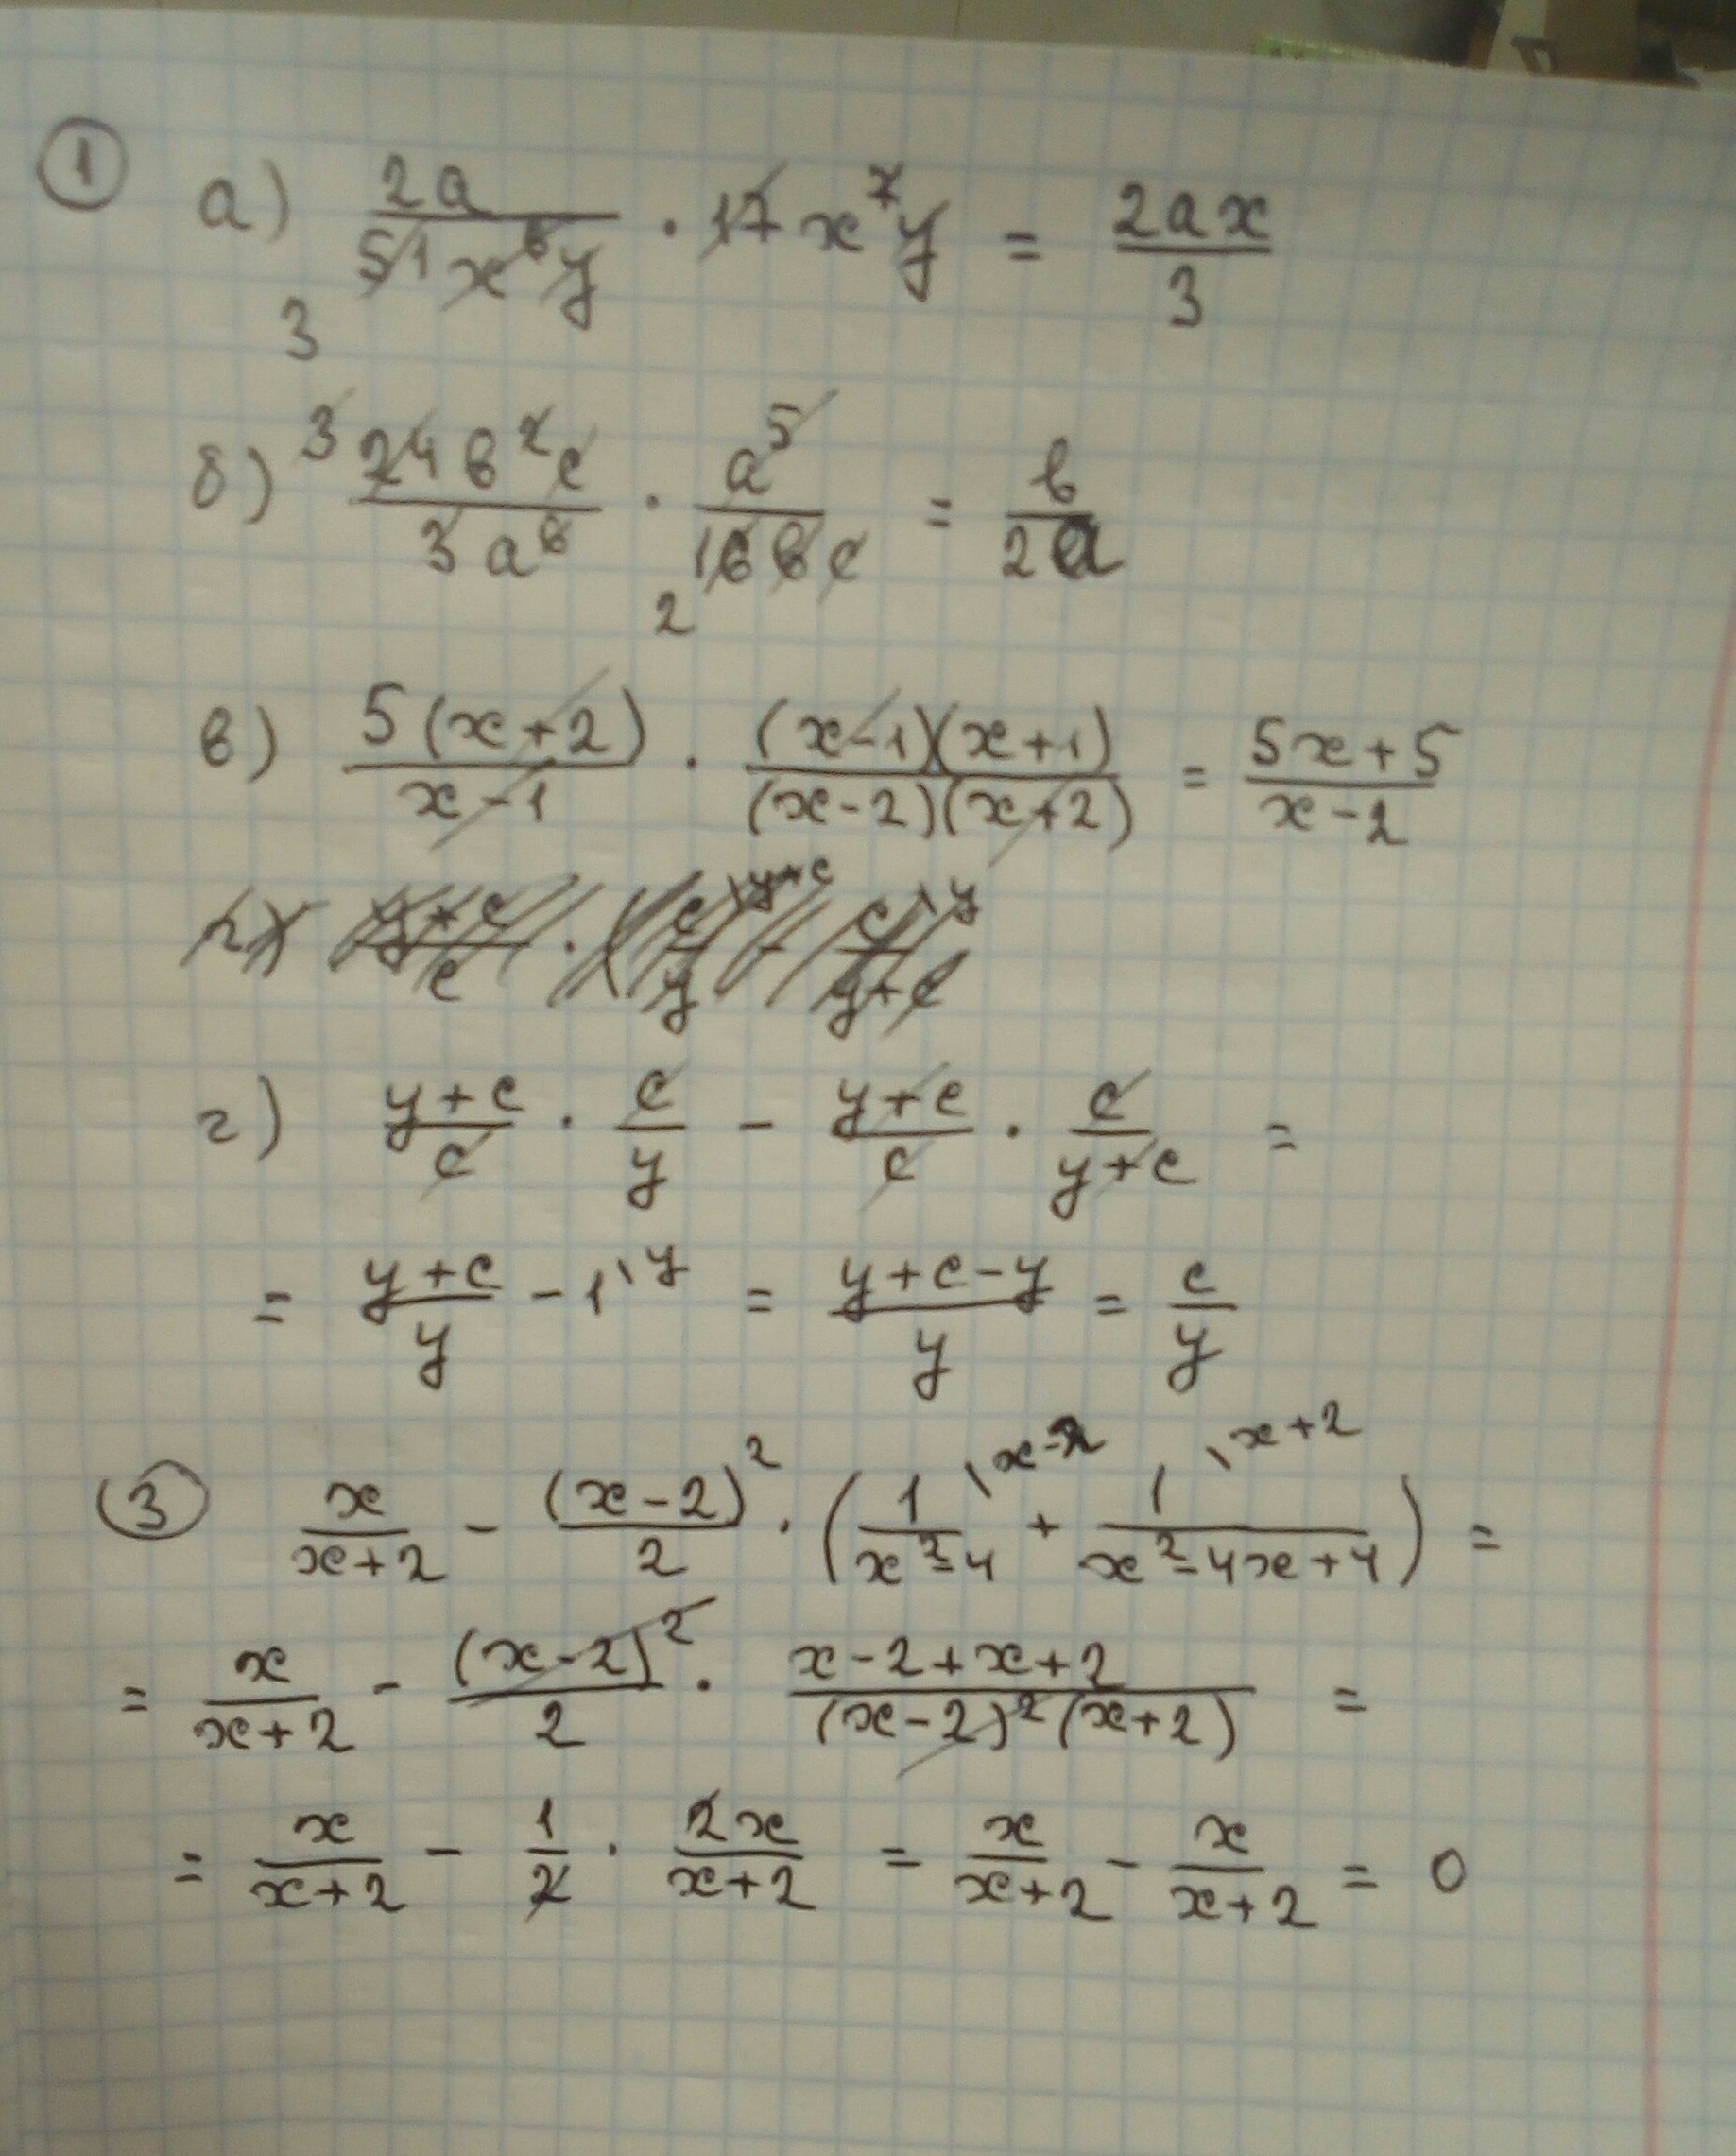 ① а) 2a/(51x⁶y) · 17x⁷y = 2ax/3
3
б) 3 24в²c/(3a⁶) · a⁵/(16вc) = в/(2a)
2
в) 5(x+2)/(x-1) · (x-1)(x+1)/((x-2)(x+2)) = (5x+5)/(x-2)
г) (y+c)/c · (c/y \y+c - c/(y+c) \y
г) (y+c)/c · c/y - (y+c)/c · c/(y+c) =
= (y+c)/y - 1\y = (y+c-y)/y = c/y
③ x/(x+2) - (x-2)²/2 · (1/(x²-4) \x-2 + 1/(x²-4x+4) \x+2) =
= x/(x+2) - (x-2)²/2 · (x-2+x+2)/((x-2)²(x+2)) =
= x/(x+2) - 1/2 · 2x/(x+2) = x/(x+2) - x/(x+2) = 0